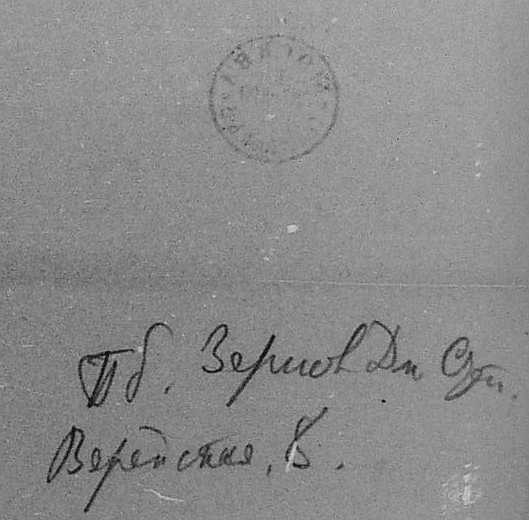 Пб. Зернов Дм. Ст.
Верейская, 8.